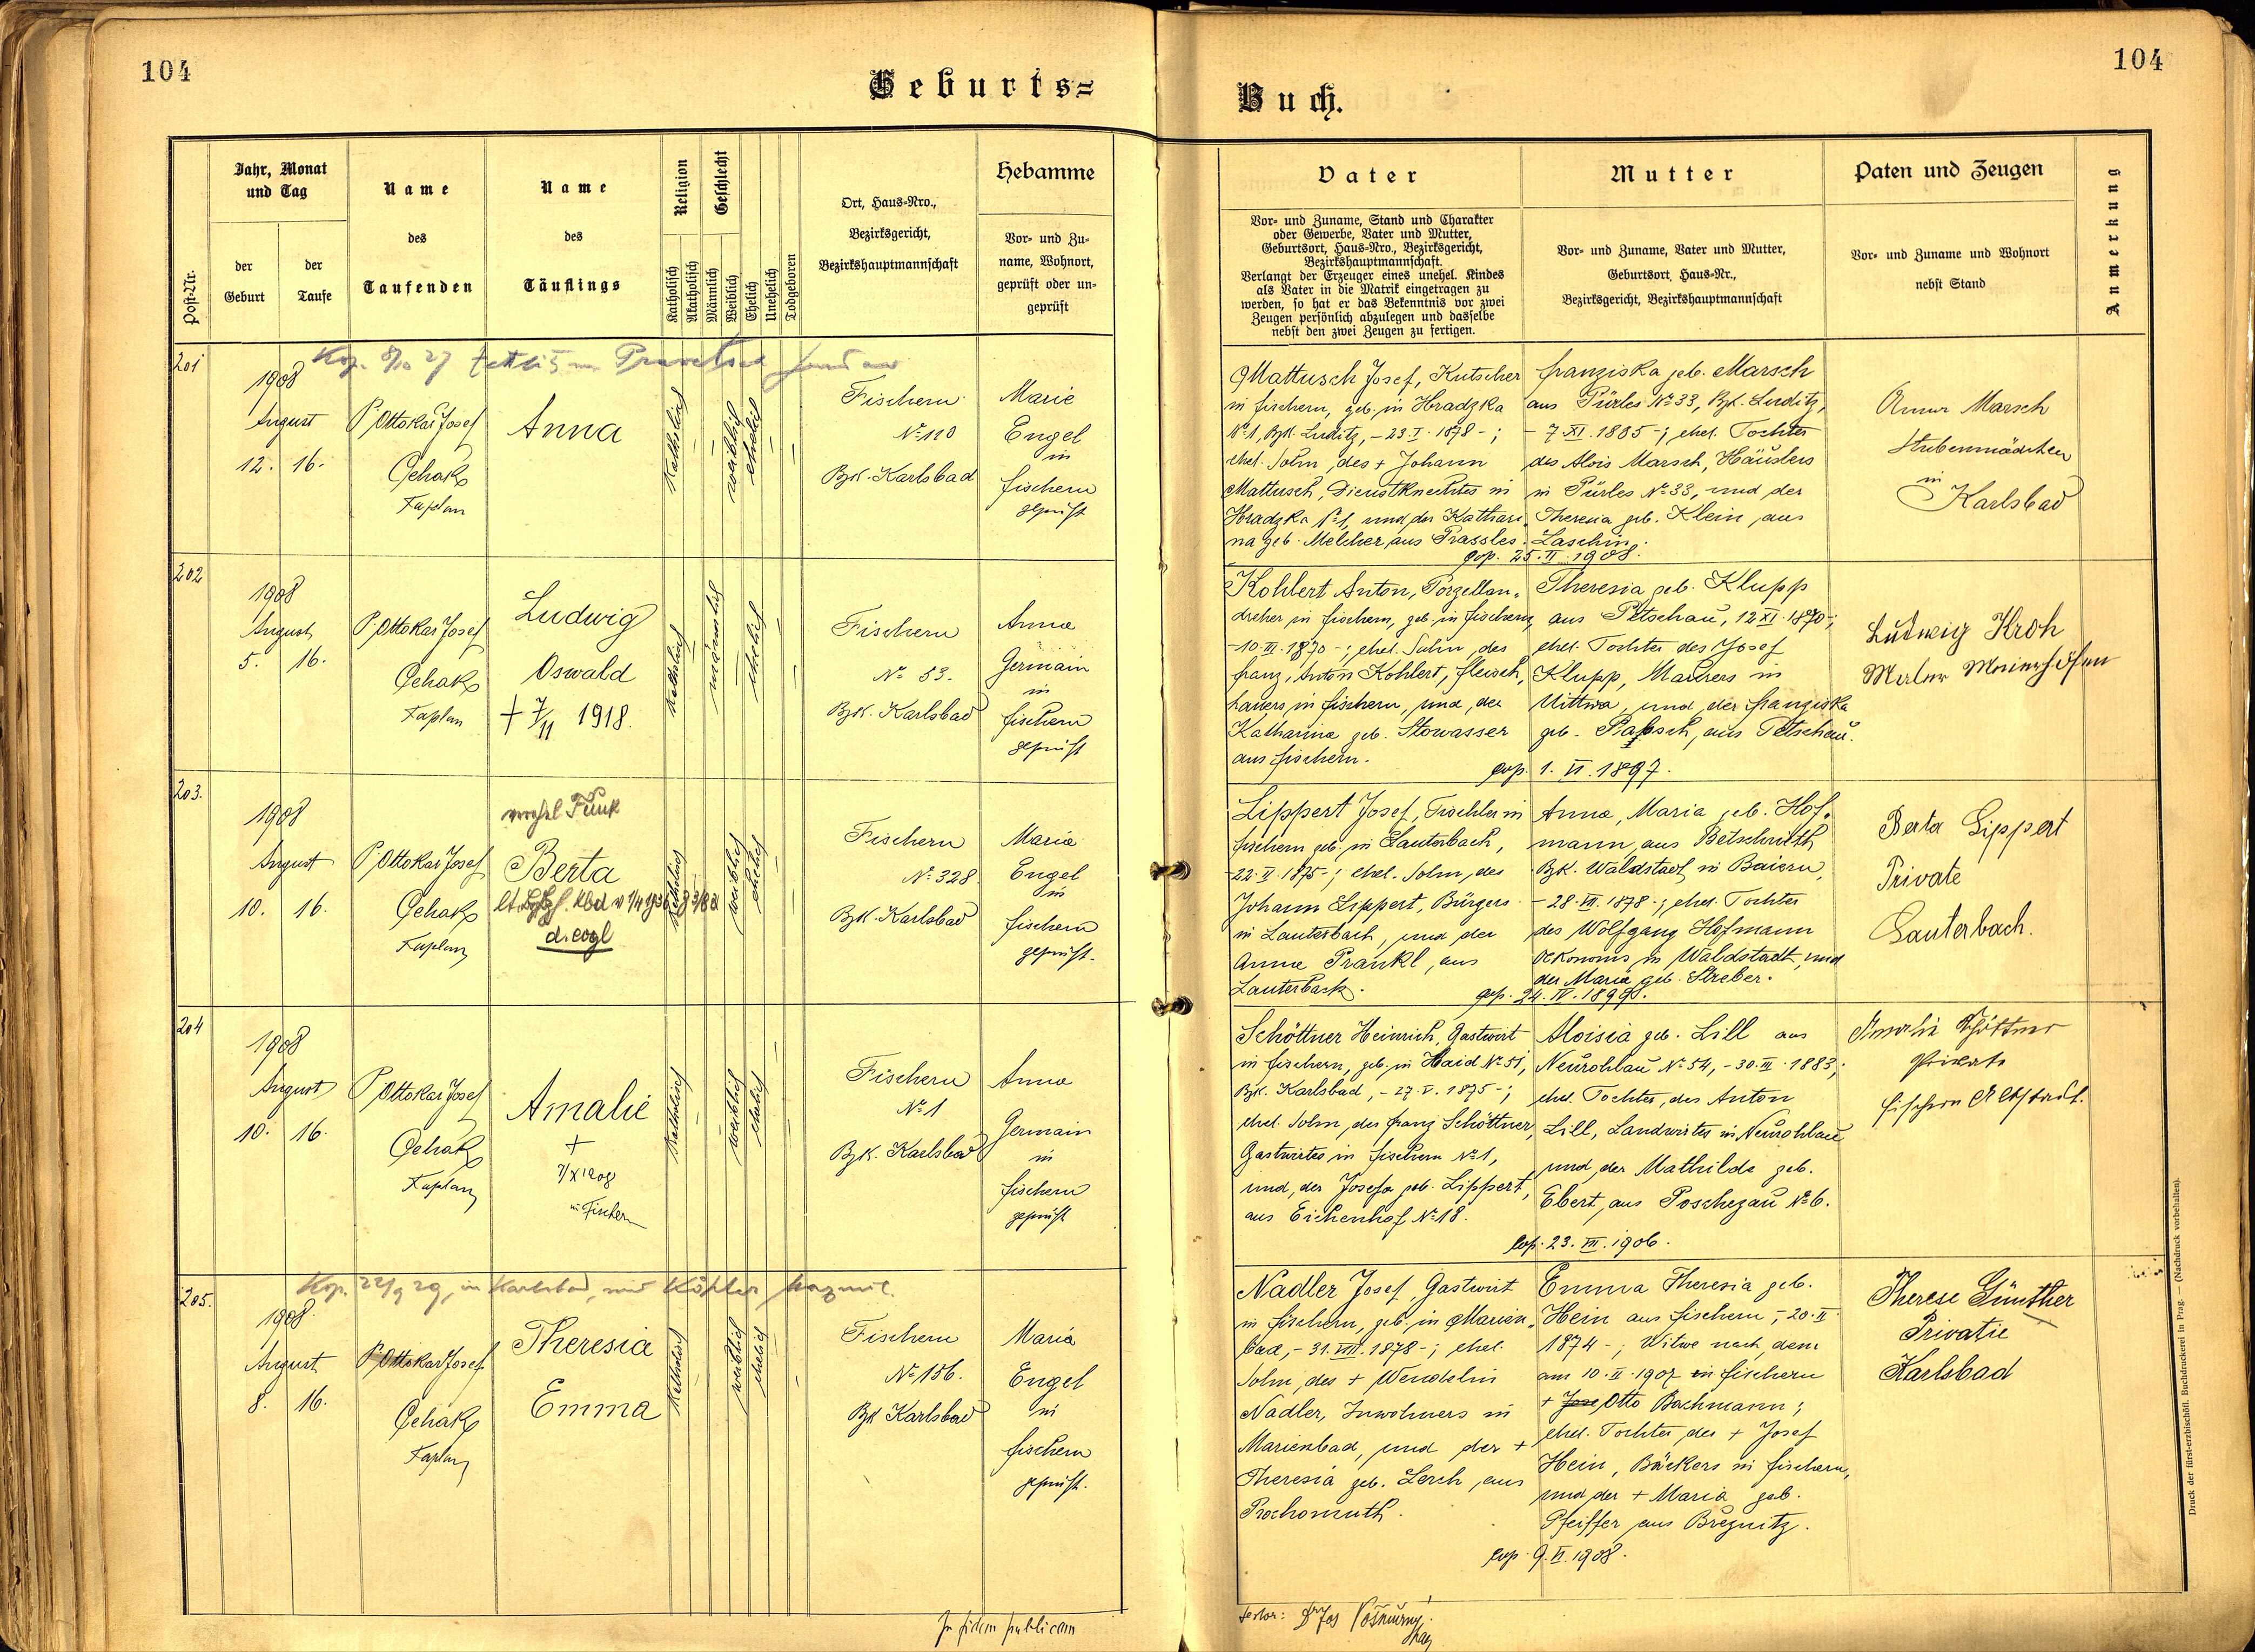 104
Geburts=
Jahr, Monat
und Tag
der
Geburt
der
Taufe
Post-Nr.
Name
des
Taufenden
Name
des
Täuflings
Religion
Katholisch
Akatholisch
Geschlecht
Männlich
Weiblich
Ehelich
Unehelich
Todgeboren
Ort, Haus-Nro.,
Bezirksgericht,
Bezirkshauptmannschaft
Hebamme
Vor- und Zu-
name, Wohnort,
geprüft oder un-
geprüft
201
Kop.
1908
August
12. 16.
P. Ottokar Josef
Čehak
Kaplan
Anna
Katholisch
weiblich
ehelich
Fischern
No 110
Bzk. Karlsbad
Marie
Engel
in
Fischern
geprüft
202
1908
August
5. 16.
P. Ottokar Josef
Čehak
Kaplan
Ludwig
Oswald
+ 7/11 1918.
Katholisch
männlich
ehelich
Fischern
No 53.
Bzk. Karlsbad
Anna
Germain
in
Fischern
geprüft
203.
1908
August
10. 16.
P. Ottokar Josef
Čehak
Kaplan
Berta
Katholisch
weiblich
ehelich
Fischern
No 328.
Bzk. Karlsbad
Maria
Engel
in
Fischern
geprüft.
204
1908
August
10. 16.
P. Ottokar Josef
Čehak
Kaplan
Amalie
+
7/X 1908
in Fischern
Katholisch
weiblich
ehelich
Fischern
No 1
Bzk. Karlsbad
Anna
Germain
in
Fischern
geprüft
205.
Kop. 22/9 29, in Karlsbad, mit Köhler
1908.
August
8. 16.
P. Ottokar Josef
Čehak
Kaplan
Theresia
Emma
Katholisch
weiblich
ehelich
Fischern
No 156.
Bzk Karlsbad
Maria
Engel
in
Fischern
geprüft.
In fidem publicam
104
Buch.
Vater
Vor- und Zuname, Stand und Charakter
oder Gewerbe, Vater und Mutter,
Geburtsort, Haus-Nro., Bezirksgericht,
Bezirkshauptmannschaft.
Verlangt der Erzeuger eines unehel. Kindes
als Vater in die Matrik eingetragen zu
werden, so hat er das Bekenntnis vor zwei
Zeugen persönlich abzulegen und dasselbe
nebst den zwei Zeugen zu fertigen.
Mutter
Vor- und Zuname, Vater und Mutter,
Geburtsort, Haus-Nr.,
Bezirksgericht, Bezirkshauptmannschaft
Paten und Zeugen
Vor- und Zuname und Wohnort
nebst Stand
Anmerkung
Mattusch Josef, Kutscher
in Fischern, geb. in Hradzka
No 1, Bzk. Luditz, - 23. I. 1878 - ;
ehel. Sohn des + Johann
Mattusch, Dienstknechtes in
Hradzka No 1, und der Kathari-
na geb. Melcher aus Prassles.
Franziska geb. Marsch
aus Pürles No 33, Bzk. Luditz,
- 7. XI. 1885 - ; ehel. Tochter
des Alois Marsch, Häuslers
in Pürles No 33, und der
Theresia geb. Klein, aus
Laschin.
cop. 25. II. 1908.
Anna Marsch
Stubenmädchen
in
Karlsbad
Kohlert Anton, Porzellan-
dreher in Fischern, geb. in Fischern,
- 10. III. 1870 - ; ehel. Sohn des
Franz, Anton Kohlert, Fleisch-
hauers, in Fischern, und der
Katharina geb. Stowasser
aus Fischern.
Theresia geb. Klupp
aus Petschau, 12. XI. 1870 - ;
ehel. Tochter des Josef
Klupp, Maurers in
Uittwa, und der Franziska
geb. Pabsch, aus Petschau.
cop. 1. VI. 1897.
Ludwig Kroh
Maler Maierhöfen
Lippert Josef, Tischler in
Fischern geb. in Lauterbach,
- 22. II. 1875 - ; ehel. Sohn des
Johann Lippert, Bürgers
in Lauterbach, und der
Anna Prankl, aus
Lauterbach.
Anna, Maria geb. Hof-
mann, aus Betschrieth
Bzk. Waldstadt in Baiern,
- 28. VII. 1878 - ; ehel. Tochter
des Wolfgang Hofmann
Ökonoms in Waldstadt, und
der Maria geb. Streber.
cop. 24. IV. 1899.
Berta Lippert
Private
Lauterbach.
Schöttner Heinrich, Gastwirt
in Fischern, geb. in Haid No 51,
Bzk. Karlsbad, - 27. V. 1875 - ;
ehel. Sohn, des Franz Schöttner,
Gastwirtes in Fischern No 1,
und, der Josefa geb. Lippert,
aus Eichenhof No 18.
Aloisia geb. Lill aus
Neurohlau No 54, - 30. III. 1883;
ehel. Tochter, des Anton
Lill, Landwirtes in Neurohlau
und, der Mathilde geb.
Ebert, aus Poschezau No 6.
cop. 23. VII. 1906.
Amalie Schöttner
Private
Fischern Altstadt.
Nadler Josef, Gastwirt
in Fischern, geb. in Marien-
bad, - 31. VIII. 1878 - ; ehel.
Sohn, des + Wendelin
Nadler, Inwohners in
Marienbad, und der +
Theresia geb. Lerch, aus
Prochomuth.
Emma Theresia geb.
Hein aus Fischern, - 20. II.
1874 - ; Witwe nach dem
am 10. II. 1907 in Fischern
+ Jose Otto Bachmann;
ehel. Tochter des + Josef
Hein, Bäckers in Fischern,
und der + Maria geb.
Pfeiffer aus Bregnitz.
cop. 9. VI. 1908.
Therese Günther
Private
Karlsbad
Druck der fürst-erzbischöfl. Buchdruckerei in Prag. — (Nachdruck vorbehalten).